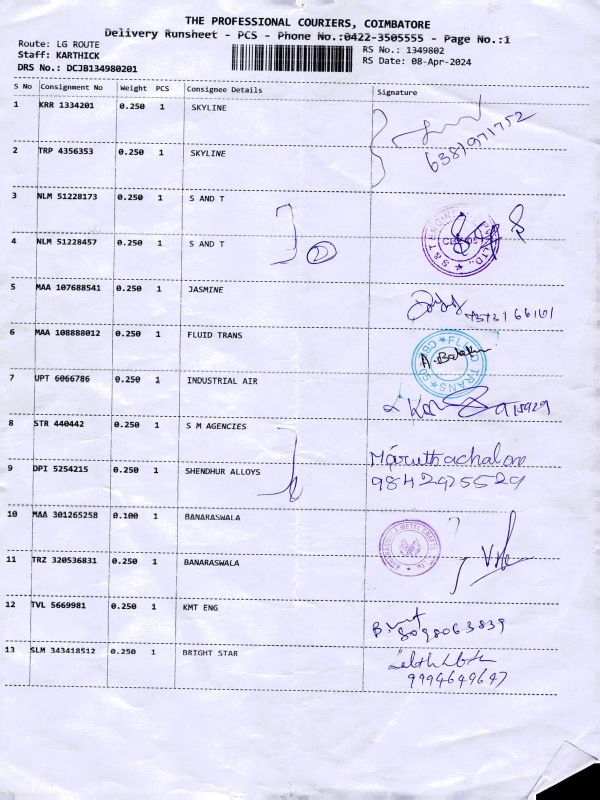 THE PROFESSIONAL COURIERS, COIMBATORE
Delivery Runsheet - PCS - Phone No.:0422-3505555 - Page No.:1
Route: LG ROUTE
Staff: KARTHICK
DRS No.: DCJB134980201
RS No.: 1349802
RS Date: 08-Apr-2024
S No Consignment No Weight PCS Consignee Details Signature
1 KRR 1334201 0.250 1 SKYLINE
6381971752
2 TRP 4356353 0.250 1 SKYLINE
3 NLM 51228173 0.250 1 S AND T
4 NLM 51228457 0.250 1 S AND T
2
5 MAA 107688541 0.250 1 JASMINE
6 MAA 108888012 0.250 1 FLUID TRANS
FLUID TRANS
7 UPT 6066786 0.250 1 INDUSTRIAL AIR
8 STR 440442 0.250 1 S M AGENCIES
Maruthachalam
9 DPI 5254215 0.250 1 SHENDHUR ALLOYS
9842925529
10 MAA 301265258 0.100 1 BANARASWALA
11 TRZ 320536831 0.250 1 BANARASWALA
12 TVL 5669981 0.250 1 KMT ENG
8098063839
13 SLM 343418512 0.250 1 BRIGHT STAR
9994649647